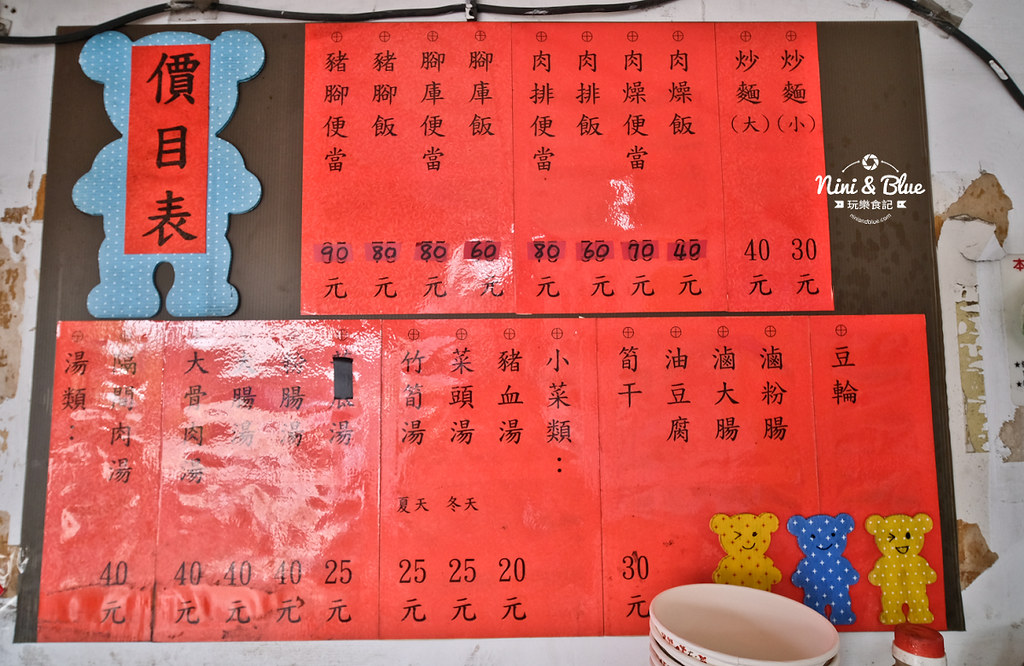 價目表
豬腳便當 90元
豬腳飯 80元
腳庫便當 80元
腳庫飯 60元
肉排便當 80元
肉排飯 60元
肉燥便當 70元
肉燥飯 40元
炒麵(大) 40元
炒麵(小) 30元
Nini & Blue
玩樂食記
niniandblue.com
湯類：
隔間肉湯 40元
大骨肉湯 40元
腸湯 40元
腸湯 40元
湯 25元
竹筍湯 夏天 25元
菜頭湯 冬天 25元
豬血湯 20元
小菜類：
筍干 30元
油豆腐
滷大腸
滷粉腸
豆輪
本